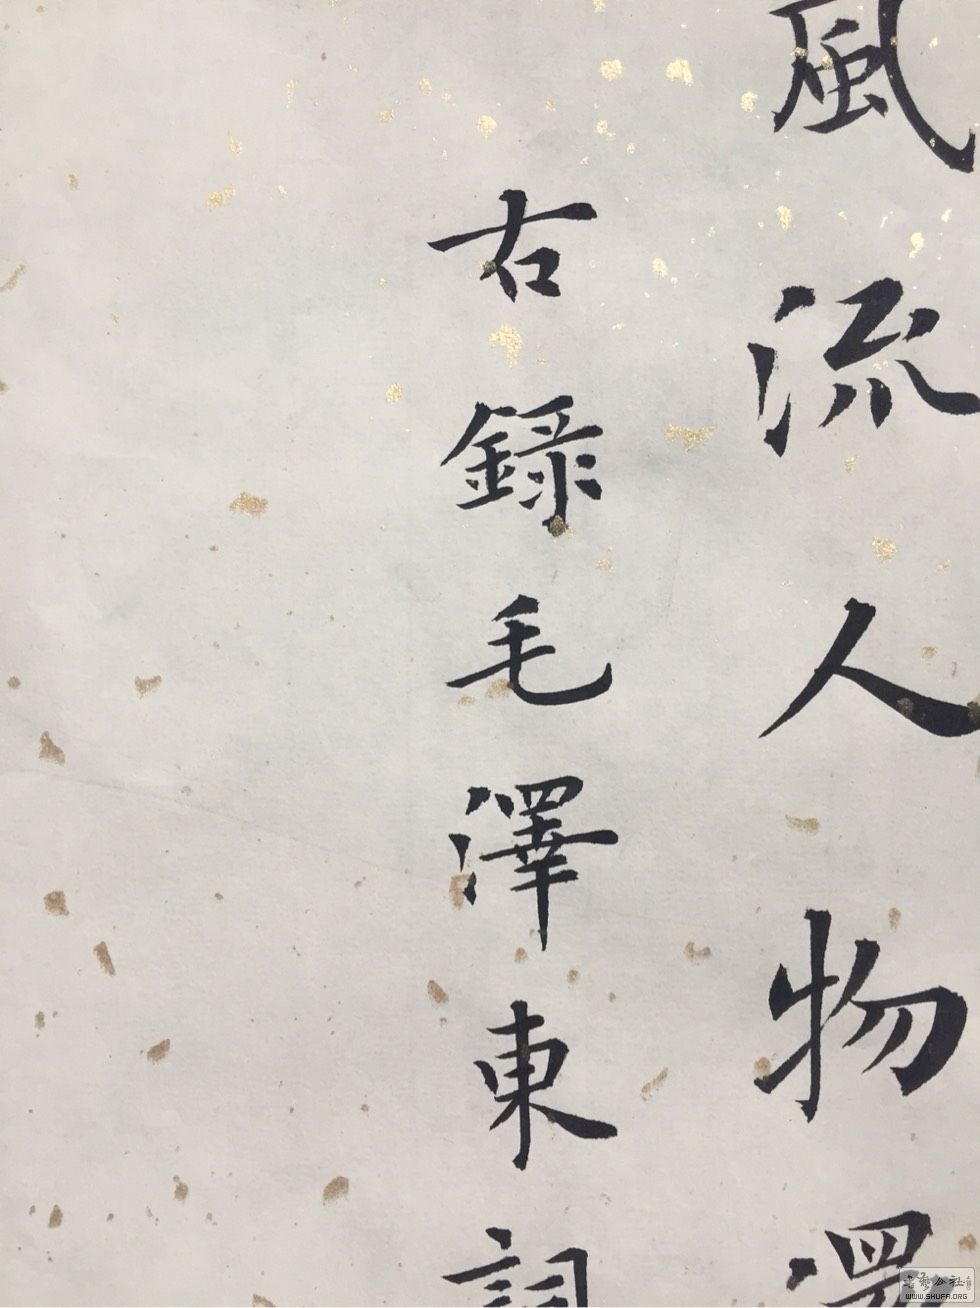 風流人物還
右錄毛澤東詞
WWW.SHUFA.ORG